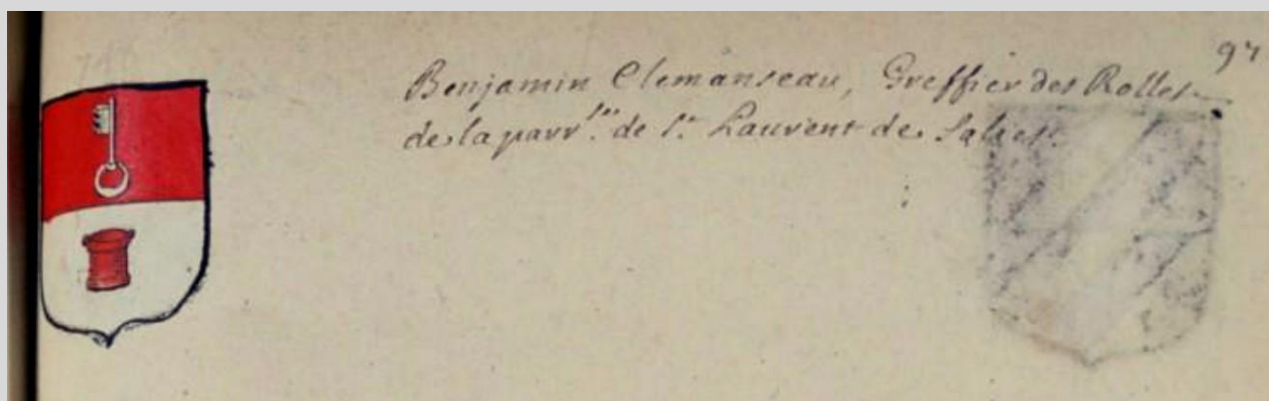 97
Benjamin Clemanseau, Greffier des Rolles
de la parr.sse de St. Laurent de Salles.